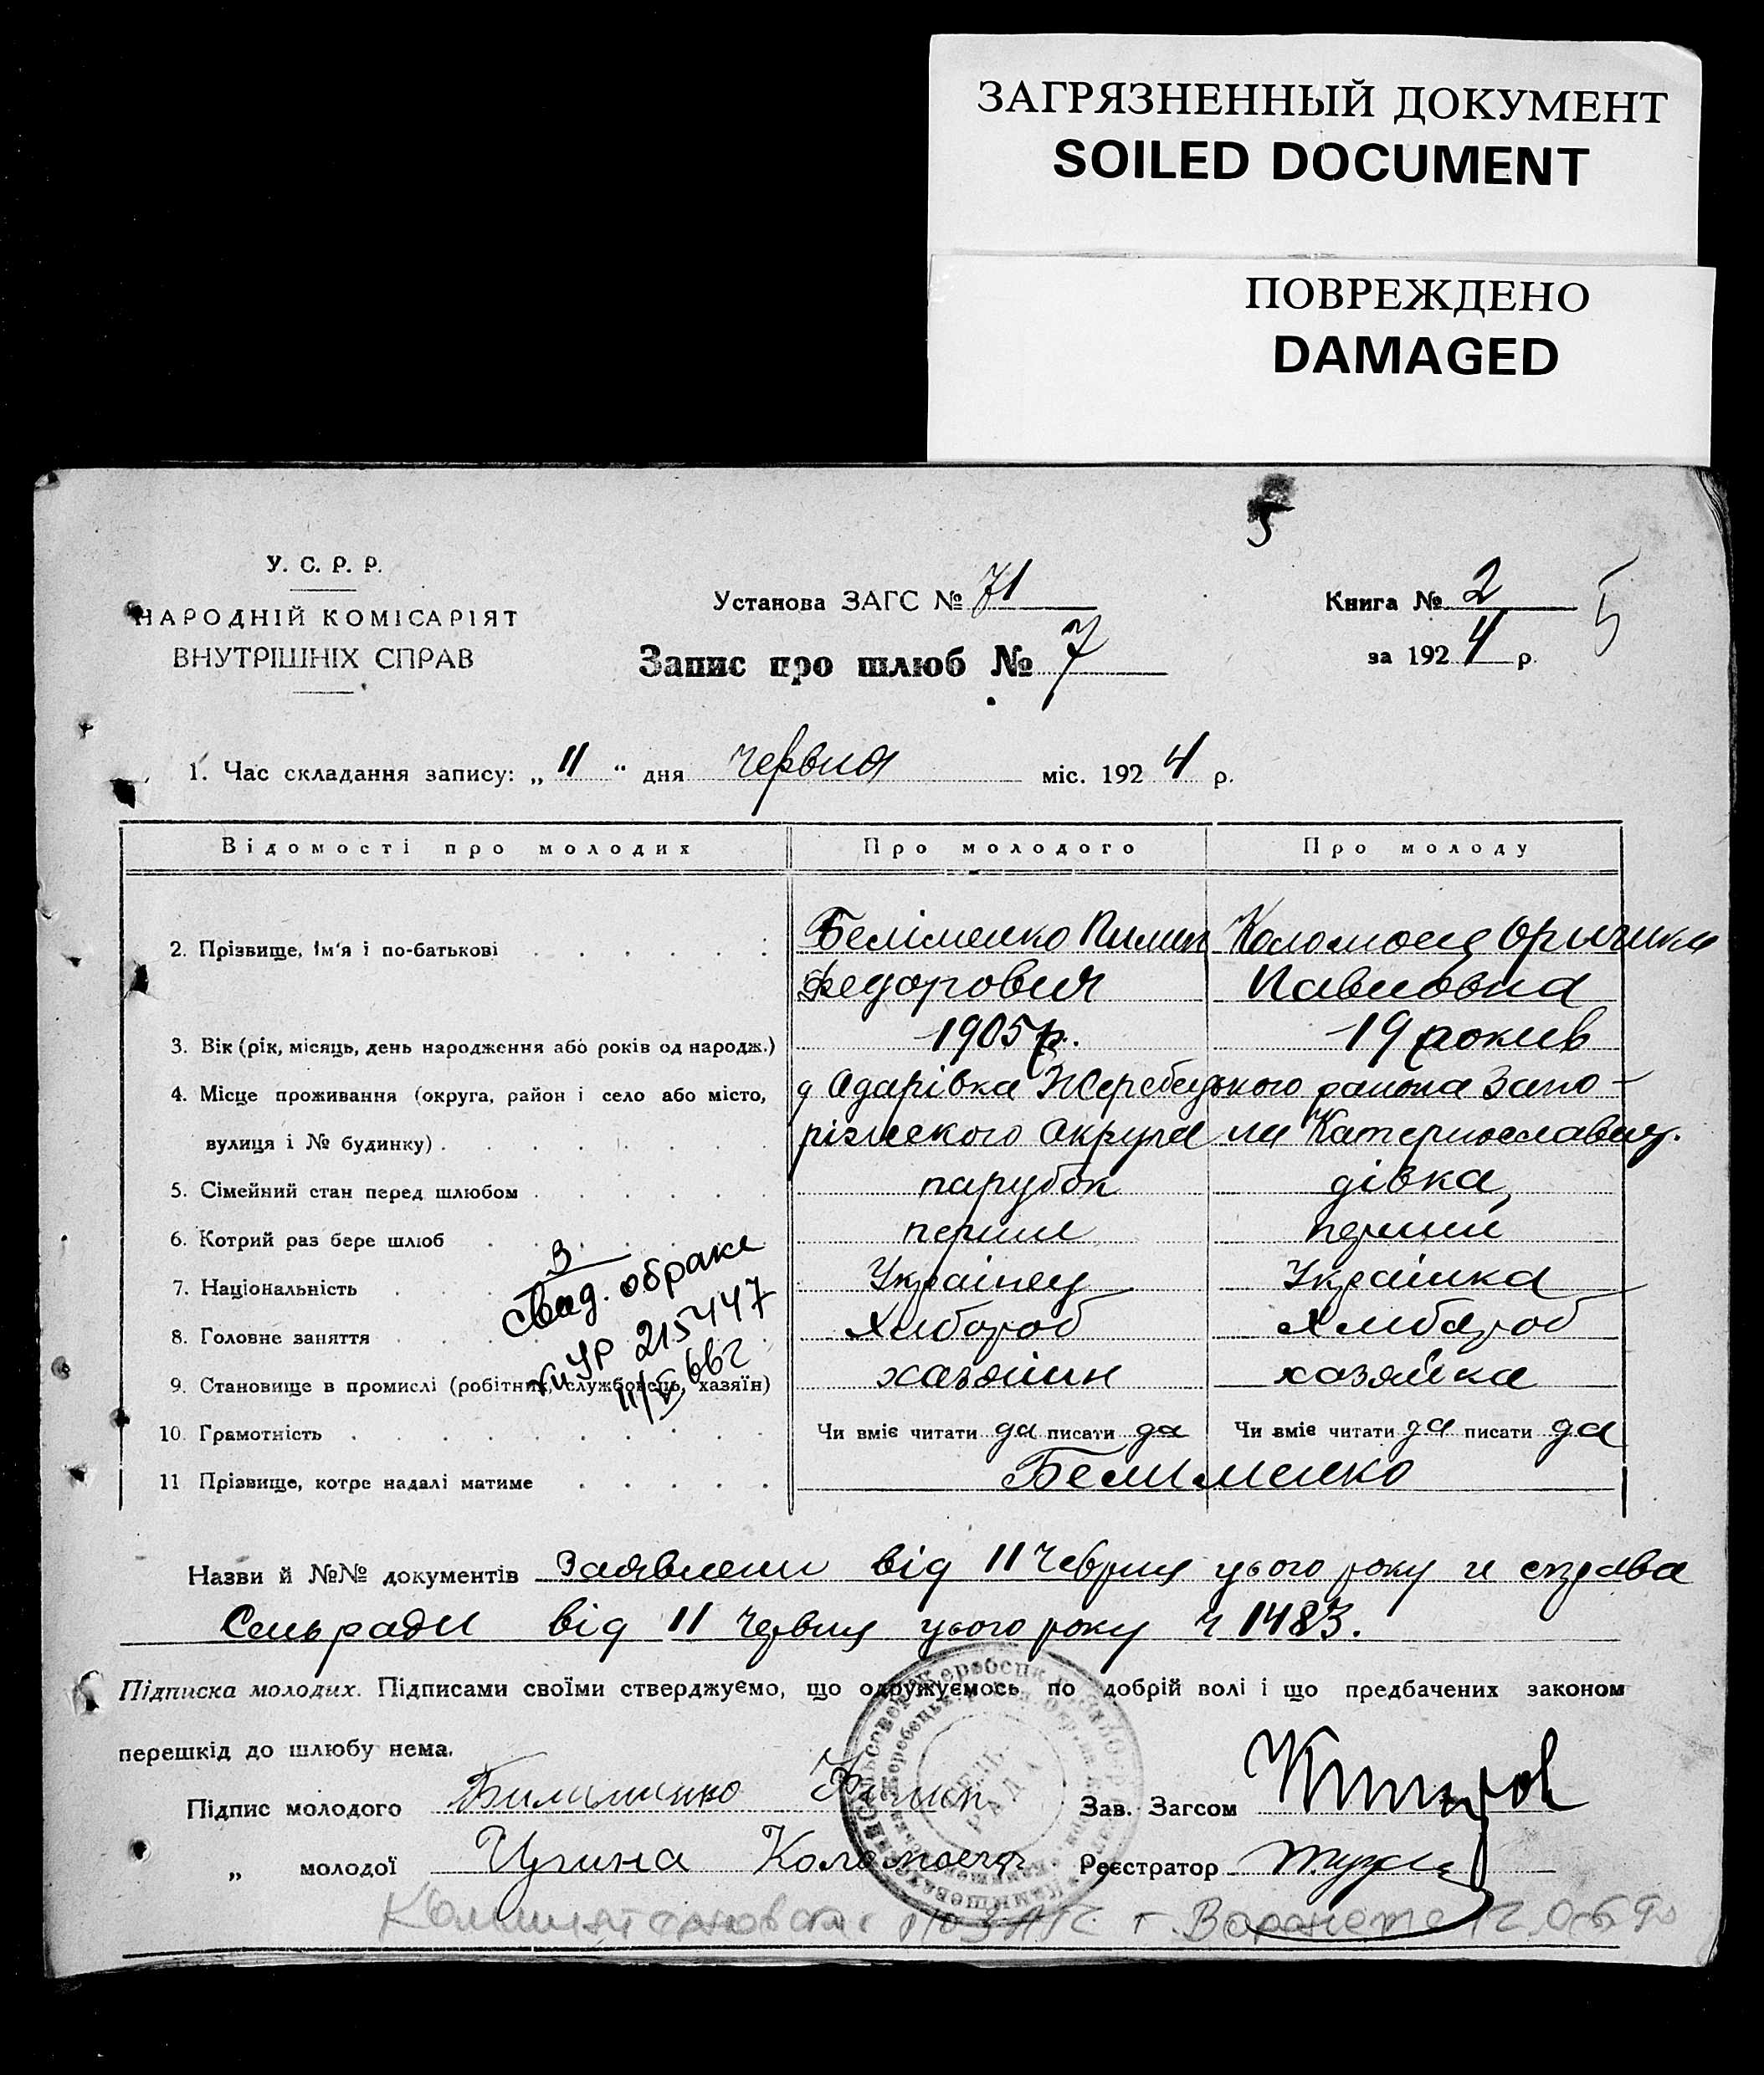 ЗАГРЯЗНЕННЫЙ ДОКУМЕНТ
SOILED DOCUMENT
ПОВРЕЖДЕНО
DAMAGED
5
У. С. Р. Р.
НАРОДНІЙ КОМІСАРІЯТ
ВНУТРІШНІХ СПРАВ
Установа ЗАГС № 71
Запис про шлюб № 7
Книга № 2
за 1924 р.
5
1. Час складання запису: „ 11 “ дня червня міс. 1924 р.
Відомості про молодих Про молодого Про молоду
2. Прізвище, ім'я і по-батькові Беліменко Пимен Коломоец
Федорович Павловна
3. Вік (рік, місяць, день народження або років од народж.) 1905 р. 19 рокив
4. Місце проживання (округа, район і село або місто, Одарівка Жеребецького района Запо-
вулиця і № будинку) різжского Округа на Катеринославщ.
5. Сімейний стан перед шлюбом парубок дівка
6. Котрий раз бере шлюб перший перший
7. Національність Українец Українка
8. Головне заняття Хлибороб Хлибороб
9. Становище в промислі (робітник, службовець, хазяїн) хазяїин хазяйка
10. Грамотність Чи вміє читати да писати да Чи вміє читати да писати да
11 Прізвище, котре надалі матиме Белименко
Свид. о браке
УР 215447
Назви й №№ документів Заявлени від 11 Чебрня цього року и справа
Сельради від 11 Червня цього року ч 1483.
Підписка молодих. Підписами своїми стверджуємо, що одружуємось по добрій волі і що предбачених законом
перешкід до шлюбу нема.
СЕЛЬ-
РАДА
Підпис молодого Билименко Зав. Загсом
„ молодої Коломоец Реєстратор